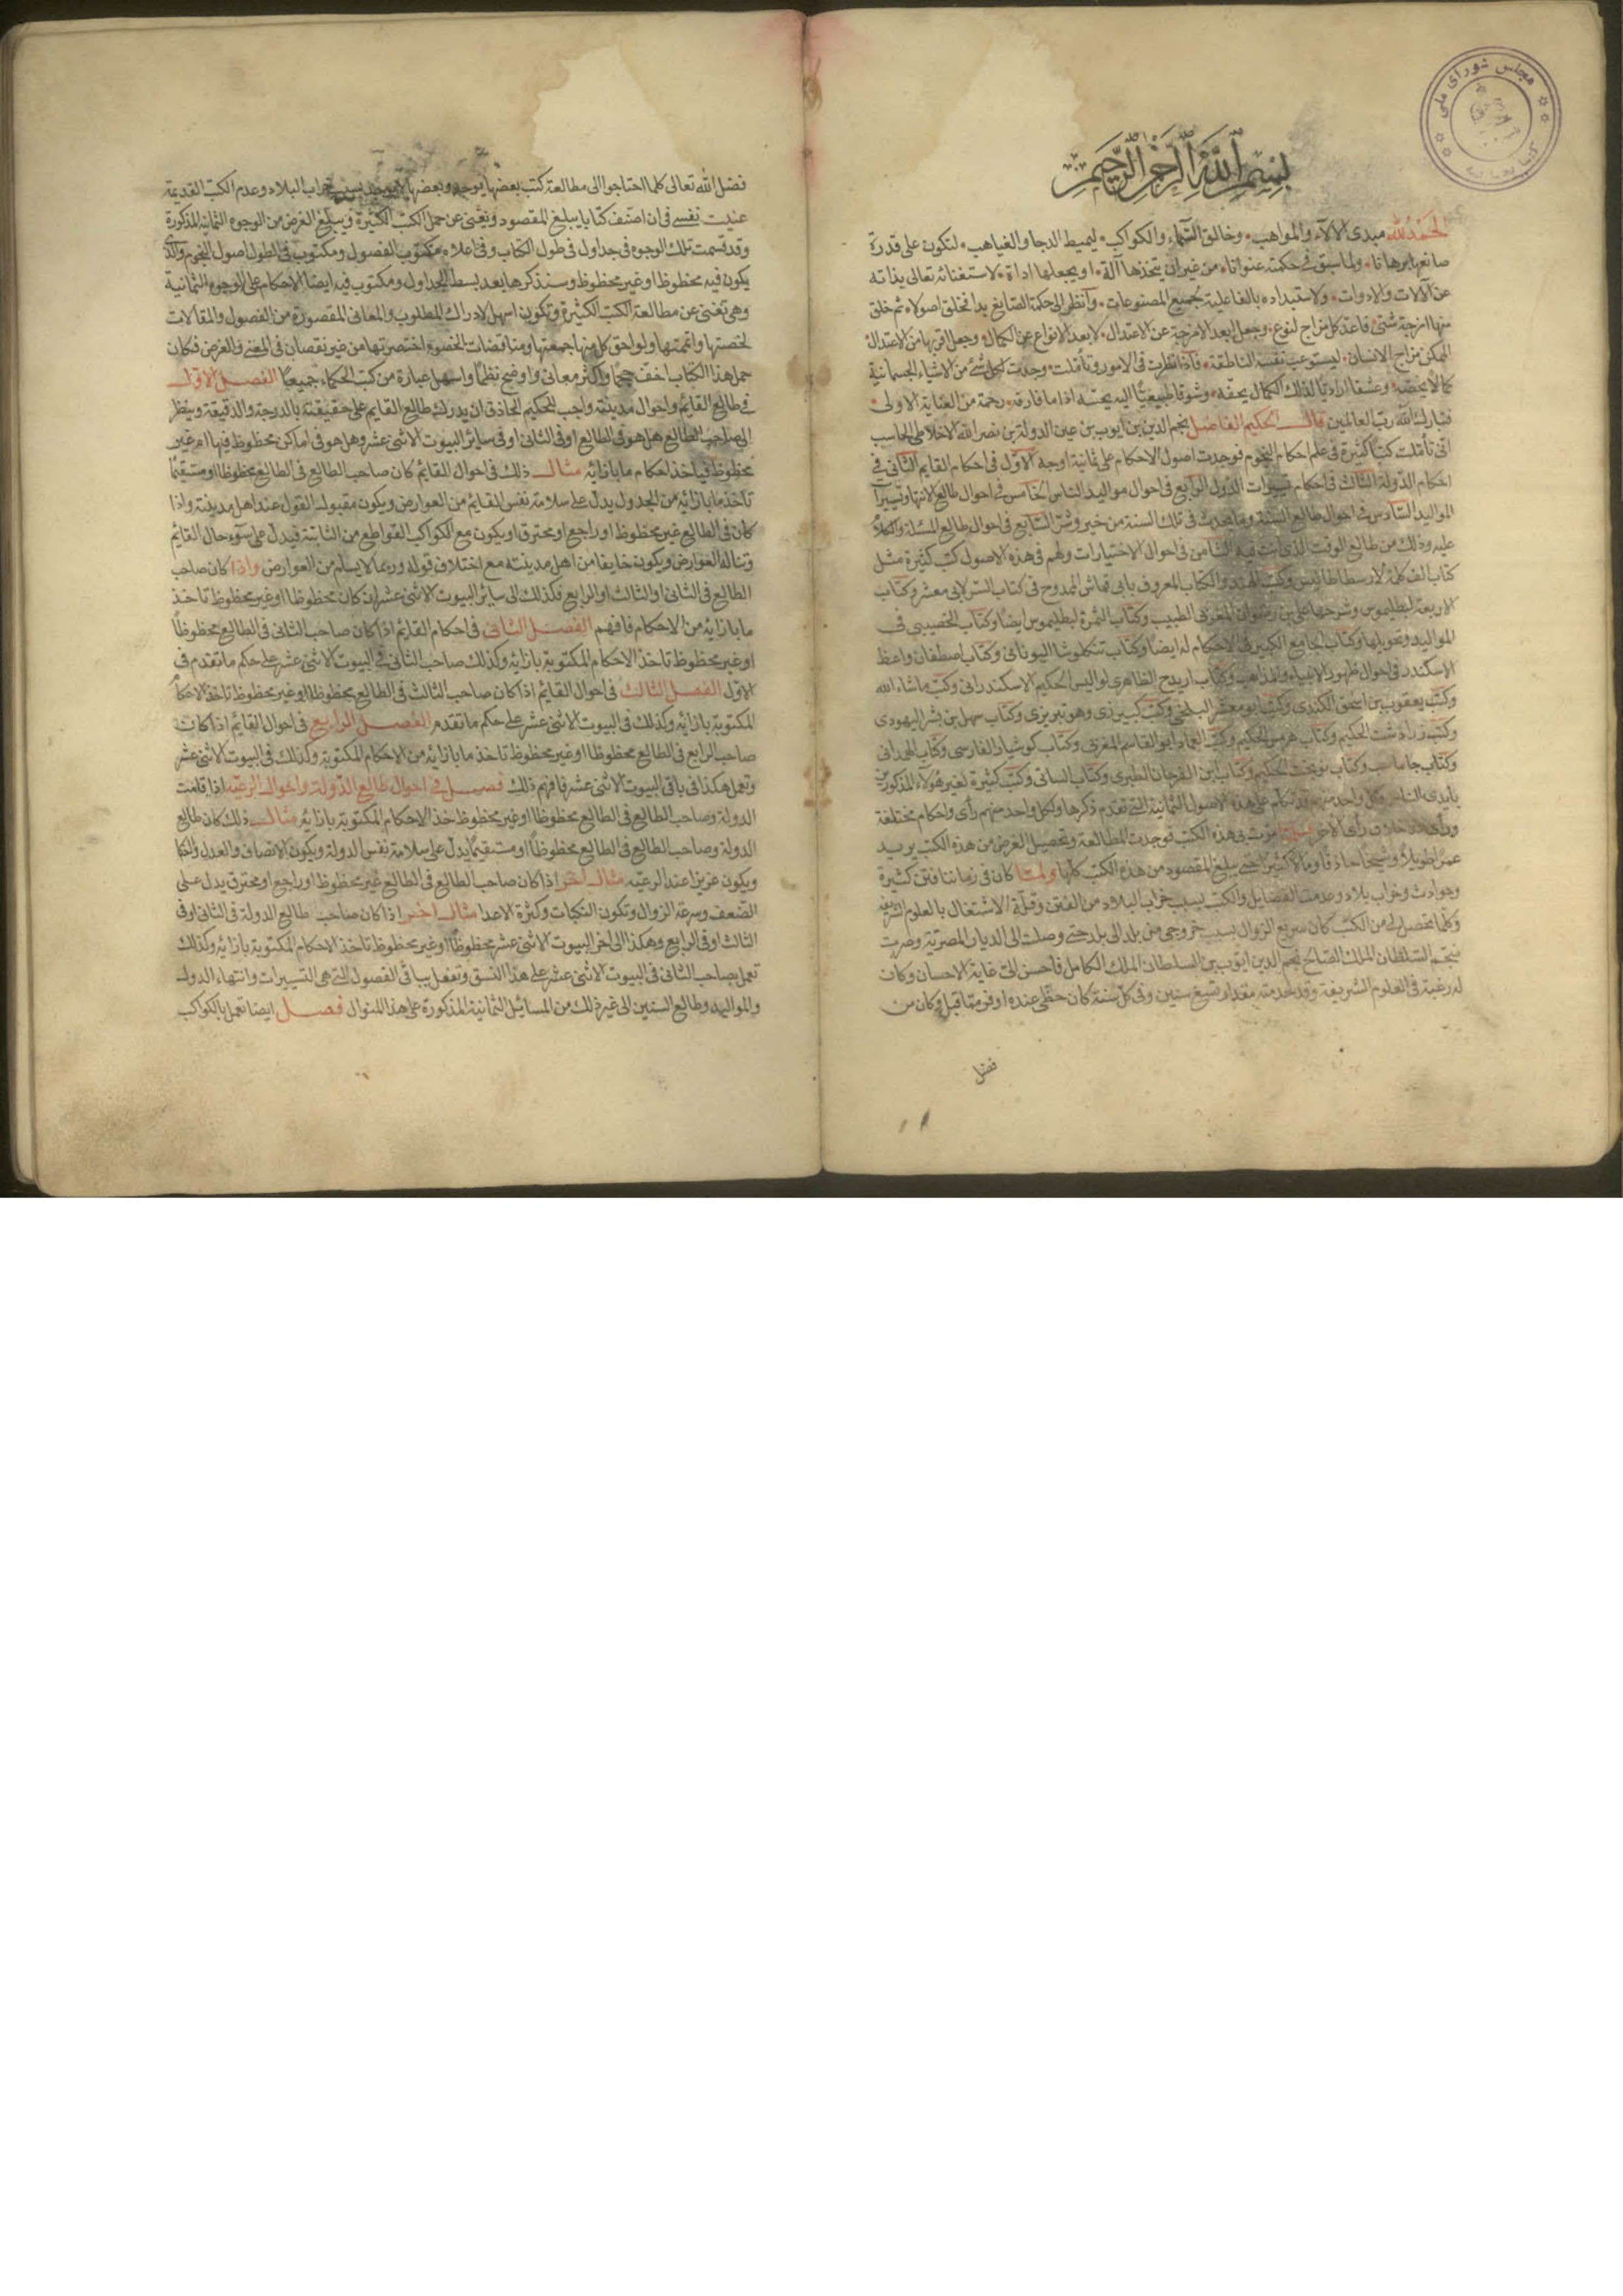 مجلس شورای ملی
بسم الله الرحمن الرحيم
الحمد لله مبدى الالآء والمواهب وخالق السماء والكواكب ليميط الدجا والغياهب لتكون على قدرة
صانعها برهانا ولما سبق فى حكمته عنوانا من غير ان يتخذها آلة او يجعلها اداة لاستغنائه تعالى بذاته
عن الآلات والادوات ولاستبداده بالفاعلية لجميع المصنوعات وانظر الى حكمة الصانع بدا فخلق اصولا ثم خلق
منها امزجة شتى فاعد كل مزاج لنوع وجعل ابعد الامزجة عن الاعتدال لابعد الانواع عن الكمال وجعل اقربها من الاعتدال
الممكن مزاج الانسان ليستوعب نفسه الناطقة فاذا نظرت فى الامور وتأملت وجدت لكل شئ من الاشياء الجسمانية
كمالا يخصه وعشقا اراديا لذلك الكمال بحقه وشوقا طبيعيا اليه يحثه اذا ما فارقه رحمة من العناية الاولى
فتبارك الله رب العالمين قال الحكيم الفاضل نجم الدين بن ايوب بن عين الدولة بن نصر الله الاخلاطى الحاسب
انى تأملت كتبا كثيرة فى علم احكام النجوم فوجدت اصول الاحكام على ثمانية اوجه الاول فى احكام القايم الثانى فى
احكام الدولة الثالث فى احكام تسييرات الدول الرابع فى احوال مواليد الناس الخامس فى احوال طالع الانتها وتسييرا
المواليد السادس فى احوال طالع السنة وما يحدث فى تلك السنة من خير وشر السابع فى احوال طالع المسئلة والكلام
عليه وذلك من طالع الوقت الذى انت فيه الثامن فى احوال الاختيارات ولهم فى هذه الاصول كتب كثيرة مثل
كتاب الف كلمة لارسطاطاليس وكتب الهند والكتاب المعروف بابى قماش الممدوح فى كتاب السر لابى معشر وكتاب
الاربعة لبطليموس وشرحها على بن رضوان المغربى الطبيب وكتاب الثمرة لبطليموس ايضا وكتاب الخصيبى فى
المواليد وتحويلها وكتاب الجامع الكبير فى الاحكام له ايضا وكتاب تنكلوشا اليونانى وكتاب اصطفان واعظ
الاسكندر فى احوال ظهور الانبياء والمذاهب وكتاب اريدج الظاهرى لواليس الحكيم الاسكندرانى وكتب ماشاء الله
وكتب يعقوب بن اسحق الكندى وكتب ابو معشر البلخى وكتب وهو تبريزى وكتاب سهل بن بشر اليهودى
وكتب زرادشت الحكيم وكتاب هرمس الحكيم وكتب العماد ابو القاسم المغربى وكتاب كوشيار الفارسى وكتاب الهمدانى
وكتاب جاماسب وكتاب نوبخت الحكيم وكتاب ابن الفرخان الطبرى وكتاب السانى وكتب كثيرة لغير هؤلاء المذكورين
بايدى الناس وكل واحد منهم قد تكلم على هذه الاصول الثمانية التى تقدم ذكرها ولكل واحد منهم رأى واحكام مختلفة
ورأى هذا خلاف رأى الاخر فلما مرت بى هذه الكتب فوجدت المطالعة وتحصيل الغرض من هذه الكتب يريد
عمرا طويلا وشيخا حاذقا ومالا كثيرا حتى يبلغ المقصود من هذه الكتب كلها ولما كان فى زماننا فتن كثيرة
وحوادث وخراب بلاد وعدمت الفضايل والكتب بسبب خراب البلاد من الفتن وقلة الاشتغال بالعلوم الشريفة
وكلما تحصل لى من الكتب كان سريع الزوال بسبب خروجى من بلد الى بلد حتى وصلت الى الديار المصرية وصرت
منجم السلطان الملك الصالح نجم الدين ايوب بن السلطان الملك الكامل فاحسن الى غاية الاحسان وكان
له رغبة فى العلوم الشريفة وقد خدمته مقدار تسع سنين وفى كل سنة كان حظى عنده اوفر مما قبل وكان من
فضل
فضل الله تعالى كلما احتاجوا الى مطالعة كتب بعضها يوجد وبعضها لا يوجد بسبب خراب البلاد وعدم الكتب القديمة
عنيت نفسى فى ان اصنف كتابا يبلغ المقصود ويغنى عن حمل الكتب الكثيرة ويبلغ الغرض من الوجوه الثمانية المذكورة
وقد قسمت تلك الوجوه فى جداول فى طول الكتاب وفى اعلاه مكتوب الفصول ومكتوب فى الطول اصول النجوم والذى
يكون فيه محظوظا او غير محظوظ وسنذكرها بعد بسط الجداول ومكتوب فيه ايضا الاحكام على الوجوه الثمانية
وهى تغنى عن مطالعة الكتب الكثيرة وتكون اسهل لادراك المطلوب والمعانى المقصورة من الفصول والمقالات
لخصتها واتممتها ولواحق كل منها جمعتها ومناقضات الخصوم اختصرتها من غير نقصان فى المعنى والغرض فكان
حمل هذا الكتاب اخف حجما واكثر معانى واوضح نظما واسهل عبارة من كتب الحكماء جميعا الفصل الاول
فى طالع القائم واحوال مدينته واجب للحكيم الحاذق ان يدرك طالع القايم على حقيقته بالدرجة والدقيقة وينظر
الى صاحب الطالع هل هو فى الطالع او فى الثانى او فى ساير البيوت الاثنى عشر وهل هو فى اماكن محظوظ فيها ام غير
محظوظ فياخذ احكام ما بازائه مثال ذلك فى احوال القايم كان صاحب الطالع فى الطالع محظوظا او مستقيما
تأخذ ما بازائه من الجدول يدل على سلامة نفس القائم من العوارض ويكون مقبول القول عند اهل مدينته واذا
كان فى الطالع غير محظوظ او راجع او محترق او يكون مع الكواكب القواطع من الثابتة فيدل على سوء حال القائم
وتناله العوارض ويكون خايفا من اهل مدينته مع اختلاف قوله وربما لا يسلم من العوارض واذا كان صاحب
الطالع فى الثانى او الثالث او الرابع فكذلك الى سائر البيوت الاثنى عشر ان كان محظوظا او غير محظوظ تاخذ
ما بازائه من الاحكام فافهم الفصل الثانى فى احكام القايم اذا كان صاحب الثانى فى الطالع محظوظا
او غير محظوظ تاخذ الاحكام المكتوبة بازائه وكذلك صاحب الثانى فى البيوت الاثنى عشر على حكم ما تقدم فى
الاول الفصل الثالث فى احوال القايم اذا كان صاحب الثالث فى الطالع محظوظا او غير محظوظ تاخذ الاحكام
المكتوبة بازائه وكذلك فى البيوت الاثنى عشر على حكم ما تقدم الفصل الرابع فى احوال القايم اذا كان
صاحب الرابع فى الطالع محظوظا او غير محظوظ تاخذ ما بازائه من الاحكام المكتوبة وكذلك فى البيوت الاثنى عشر
وتعمل هكذا فى باقى البيوت الاثنى عشر فافهم ذلك فصل فى احوال طالع الدولة واحوال الرعية اذا قامت
الدولة وصاحب الطالع فى الطالع محظوظا او غير محظوظ خذ الاحكام المكتوبة بازائه مثال ذلك كان طالع
الدولة وصاحب الطالع فى الطالع محظوظا او مستقيما يدل على سلامة نفس الدولة ويكون الانصاف والعدل
ويكون عزيزا عند الرعية مثال اخر اذا كان صاحب الطالع فى الطالع غير محظوظ او راجع او محترق يدل على
الضعف وسرعة الزوال وتكون النكبات وكثرة الاعدا مثال اخر اذا كان صاحب طالع الدولة فى الثانى او فى
الثالث او فى الرابع وهكذا الى اخر البيوت الاثنى عشر محظوظا او غير محظوظ تاخذ الاحكام المكتوبة بازائه وكذلك
تعمل بصاحب الثانى فى البيوت الاثنى عشر على هذا النسق وتفعل بباقى الفصول التى هى التسييرات وانتهاء الدول
والمواليد وطالع السنين الى غير ذلك من المسائل الثمانية المذكورة على هذا المنوال فصل ايضا تعمل بالكواكب